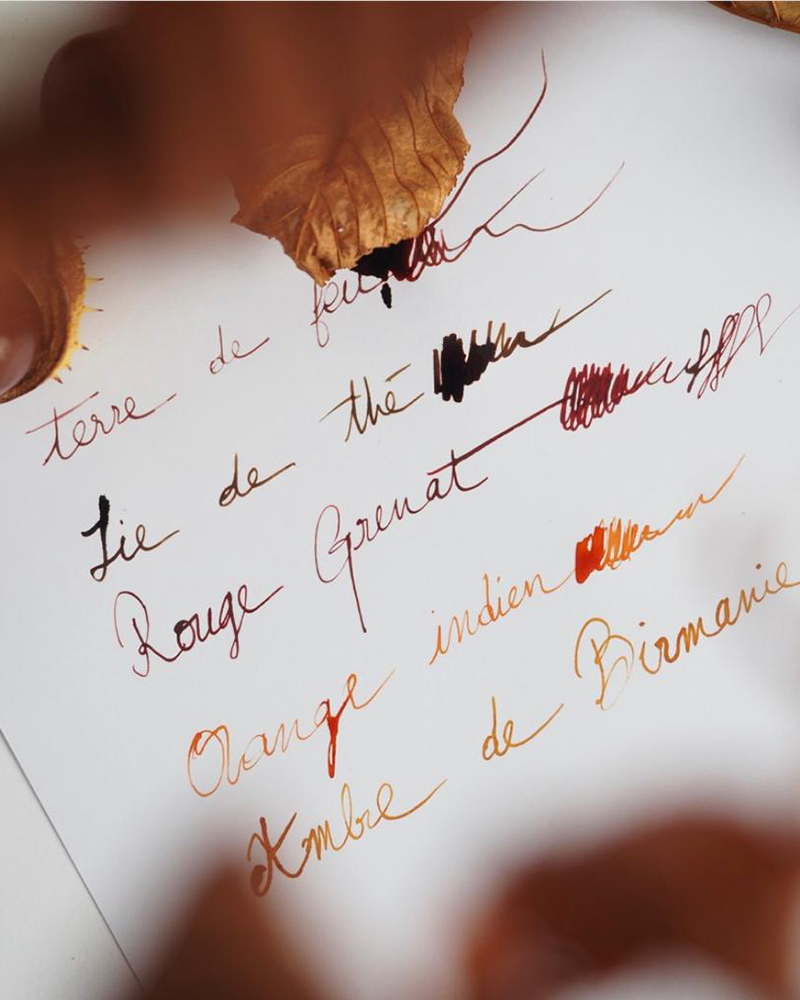 terre de feu
Lie de thé
Rouge Grenat
Orange indien
Ambre de Birmanie